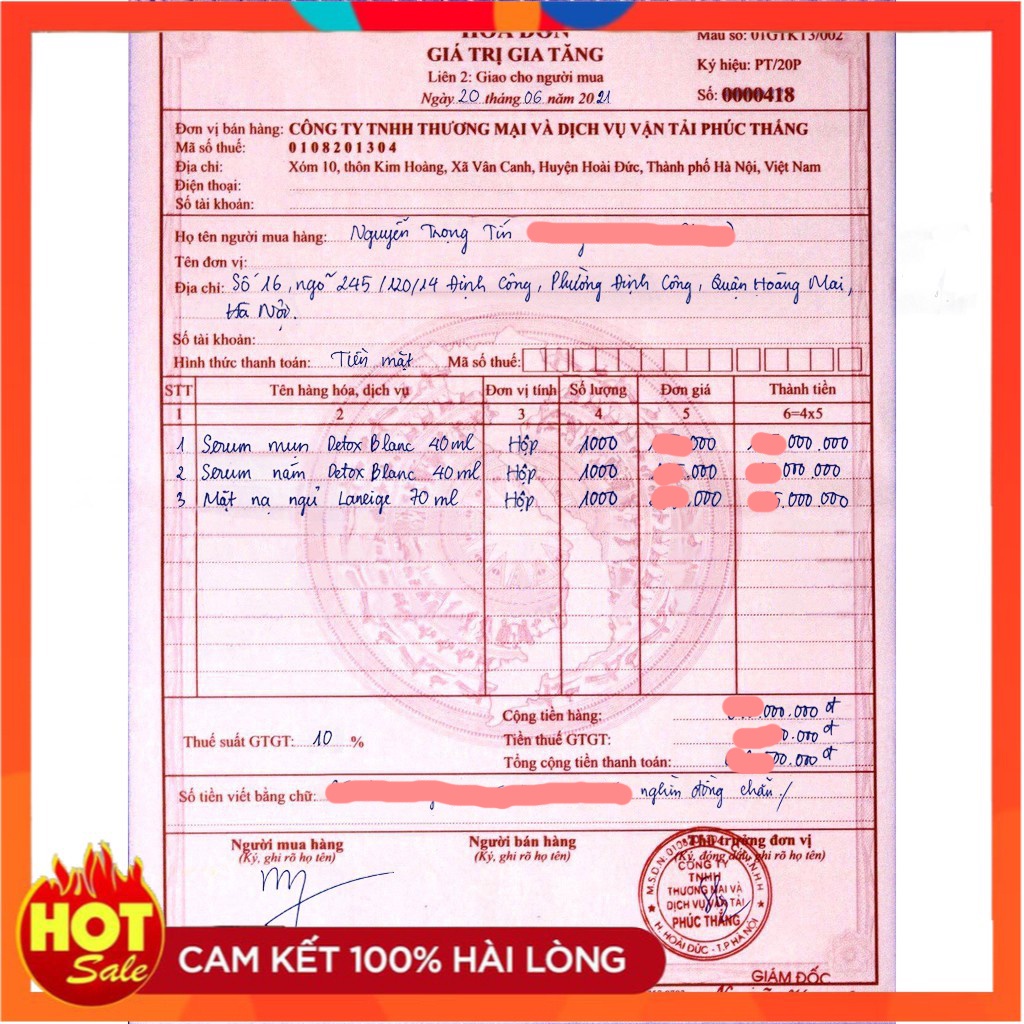 HÓA ĐƠN
GIÁ TRỊ GIA TĂNG
Liên 2: Giao cho người mua
Ngày 20 tháng 06 năm 2021
Mẫu số: 01GTKT3/002
Ký hiệu: PT/20P
Số: 0000418
Đơn vị bán hàng: CÔNG TY TNHH THƯƠNG MẠI VÀ DỊCH VỤ VẬN TẢI PHÚC THẮNG
Mã số thuế: 0108201304
Địa chỉ: Xóm 10, thôn Kim Hoàng, Xã Vân Canh, Huyện Hoài Đức, Thành phố Hà Nội, Việt Nam
Điện thoại:
Số tài khoản:
Họ tên người mua hàng: Nguyễn Trọng Tín
Tên đơn vị:
Địa chỉ: Số 16, ngõ 245/120/14 Định Công, Phường Định Công, Quận Hoàng Mai,
Hà Nội.
Số tài khoản:
Hình thức thanh toán: Tiền mặt Mã số thuế:
STT Tên hàng hóa, dịch vụ Đơn vị tính Số lượng Đơn giá Thành tiền
1 2 3 4 5 6=4x5
1 Serum mụn Detox Blanc 40ml Hộp 1000 000 000.000
2 Serum nám Detox Blanc 40ml Hộp 1000 .000 000.000
3 Mặt nạ ngủ Laneige 70ml Hộp 1000 .000 5.000.000
Cộng tiền hàng: .000.000 đ
Thuế suất GTGT: 10 % Tiền thuế GTGT: 0.000 đ
Tổng cộng tiền thanh toán: 500.000 đ
Số tiền viết bằng chữ: nghìn đồng chẵn./
Người mua hàng Người bán hàng Thủ trưởng đơn vị
(Ký, ghi rõ họ tên) (Ký, ghi rõ họ tên) (Ký, đóng dấu, ghi rõ họ tên)
CÔNG TY
TNHH
THƯƠNG MẠI VÀ
DỊCH VỤ VẬN TẢI
PHÚC THẮNG
H. HOÀI ĐỨC - T.P HÀ NỘI
GIÁM ĐỐC
HOT
Sale
CAM KẾT 100% HÀI LÒNG